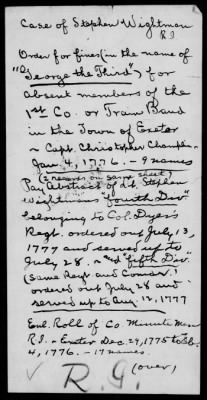 Case of Stephen Wightman
R.I.
Order for fines (in the name of
"George the Third") for
absent members of the
1st Co. or Train Band
in the Town of Exeter
~ Capt. Christopher Champlin
Jan. 4, 1776. - 9 names
(2 records on same sheet)
Pay Abstract of Lt. Stephen
Wightmans "fourth Div"
belonging to Col. Dyer's
Regt. ordered out July 13,
1777 and served up to
July 28. ~ and "fifth Div."
(same Regt and Comdr.)
ordered out July 28 and
served up to Aug. 12, 1777
Enl. Roll of Co. Minute Men
R.I. - Exeter Dec. 29, 1775 to Feb.
4, 1776. - 17 names.
(over)
R.G.